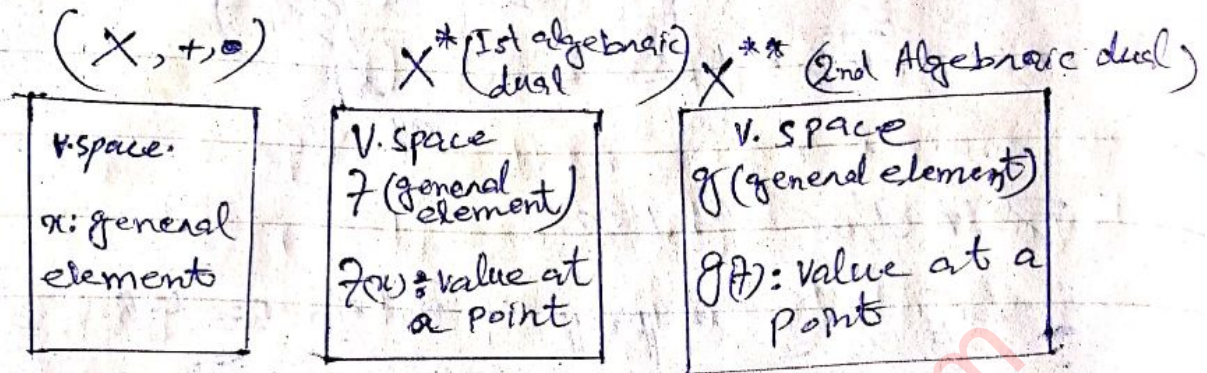 (X, +, •)
X* (Ist algebraic dual)
X** (2nd Algebraic dual)
v. space.
x: general
element
V. space
f (general
element)
f(x): value at
a point
V. space
g (general element)
g(f): value at a
point